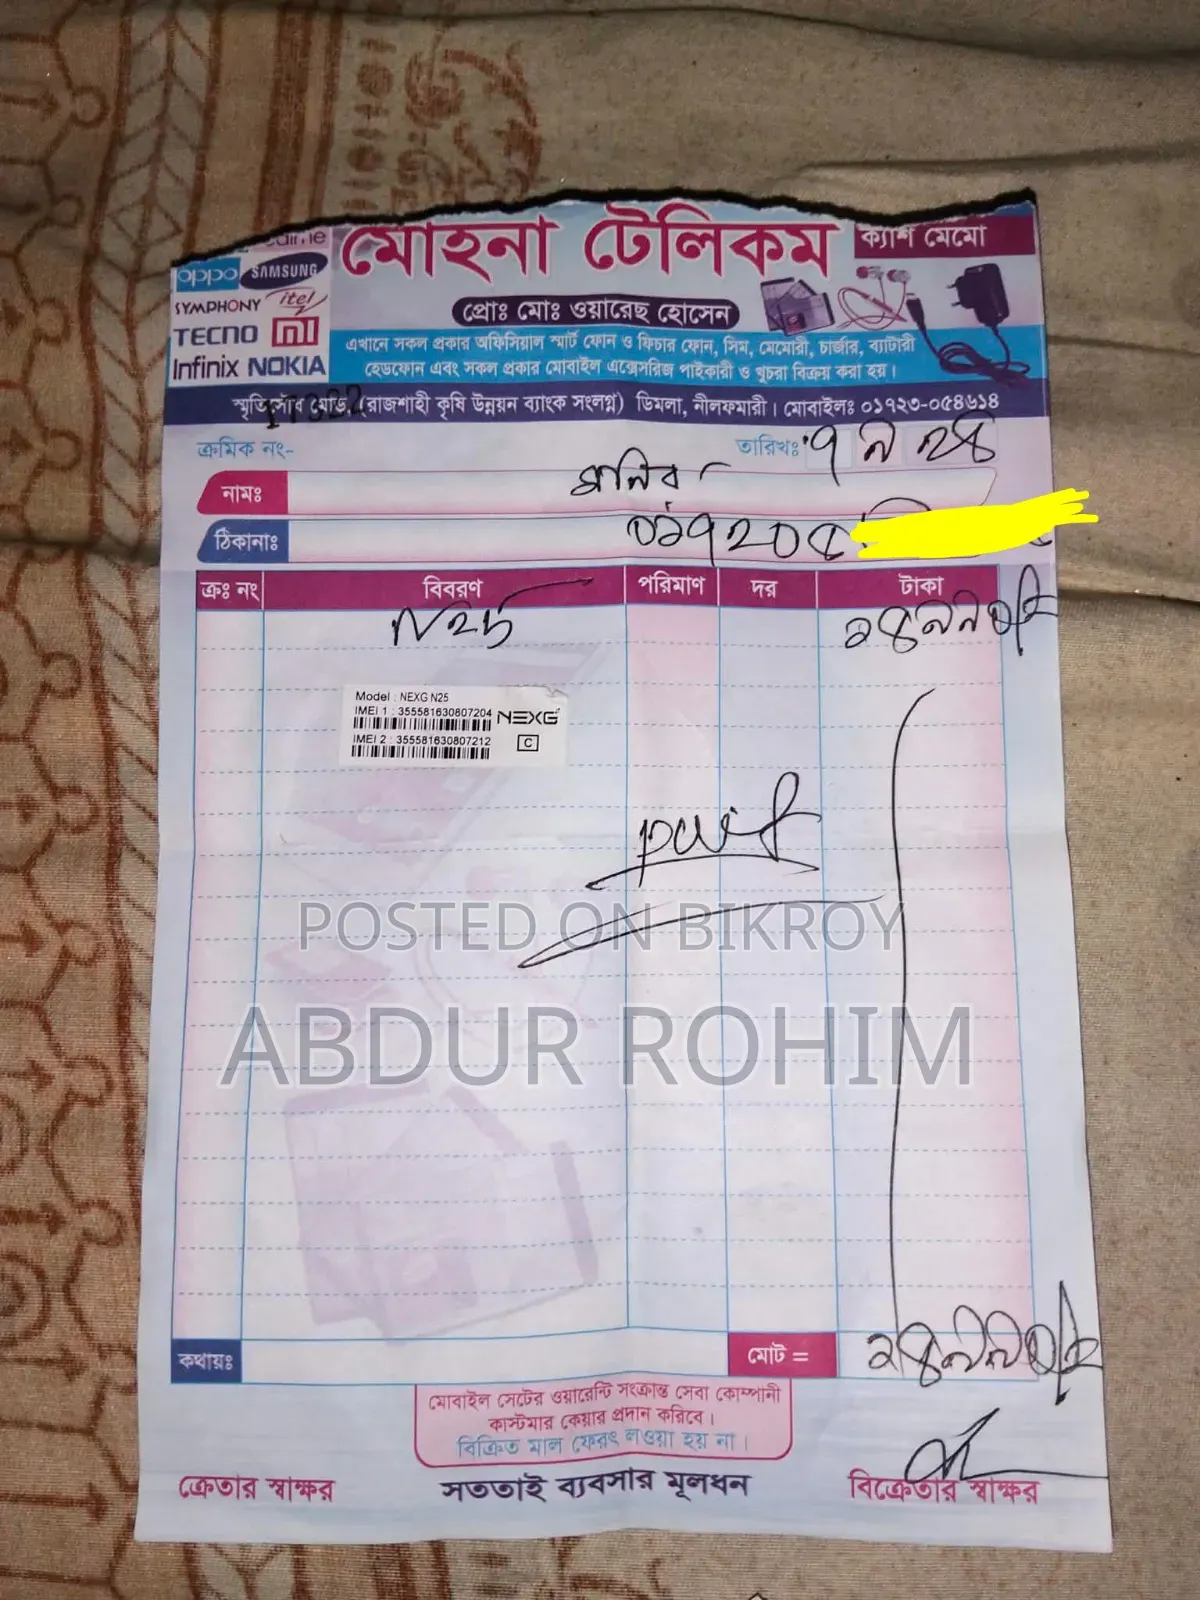 মোহনা টেলিকম
ক্যাশ মেমো
oppo SAMSUNG
SYMPHONY itel
TECNO mi
Infinix NOKIA
প্রোঃ মোঃ ওয়ারেছ হোসেন
এখানে সকল প্রকার অফিসিয়াল স্মার্ট ফোন ও ফিচার ফোন, সিম, মেমোরী, চার্জার, ব্যাটারী
হেডফোন এবং সকল প্রকার মোবাইল এক্সেসরিজ পাইকারী ও খুচরা বিক্রয় করা হয়।
(রাজশাহী কৃষি উন্নয়ন ব্যাংক সংলগ্ন) ডিমলা, নীলফামারী। মোবাইলঃ ০১৭২৩-০৫৪৬১৪
ক্রমিক নং-
তারিখঃ
নামঃ
ঠিকানাঃ ০১৭২০৫
ক্রঃ নং বিবরণ পরিমাণ দর টাকা
N25
Model : NEXG N25
IMEI 1 : 355581630807204
NEXG
IMEI 2 : 355581630807212
C
paid
POSTED ON BIKROY
ABDUR ROHIM
কথায়ঃ মোট =
মোবাইল সেটের ওয়ারেন্টি সংক্রান্ত সেবা কোম্পানী
কাস্টমার কেয়ার প্রদান করিবে।
বিক্রিত মাল ফেরৎ লওয়া হয় না।
ক্রেতার স্বাক্ষর সততাই ব্যবসার মূলধন বিক্রেতার স্বাক্ষর